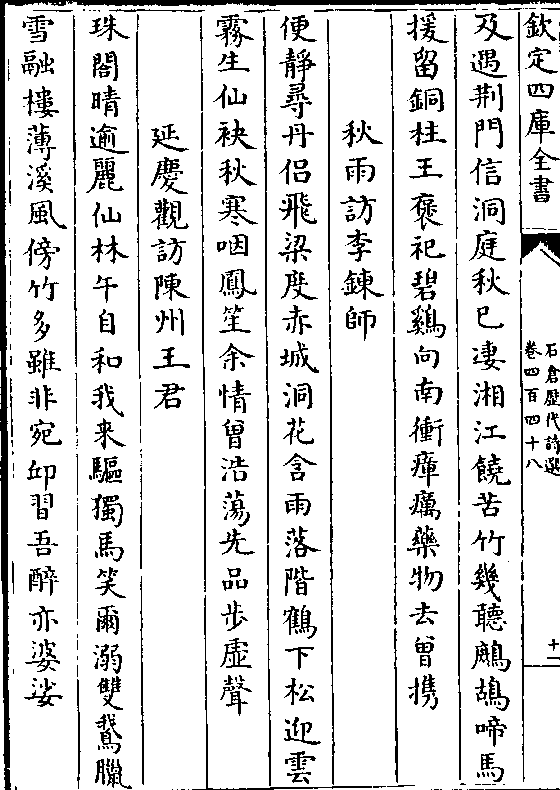 欽定四庫全書
石倉歷代詩選
卷四百四十八
十一
及遇荆門信洞庭秋已凄湘江饒苦竹幾聽鷓鴣啼馬
援留銅柱王褒祀碧鷄向南衝瘴癘藥物去曾携
秋雨訪李鍊師
便靜尋丹侶飛梁度赤城洞花含雨落階鶴下松迎雲
霧生仙袂秋寒咽鳳笙余情曾浩蕩先品步虚聲
延慶觀訪陳州王君
珠閣晴逾麗仙林午自和我来驅獨馬笑爾溺雙鵞臘
雪融樓薄溪風傍竹多雖非宛邱習吾醉亦婆娑